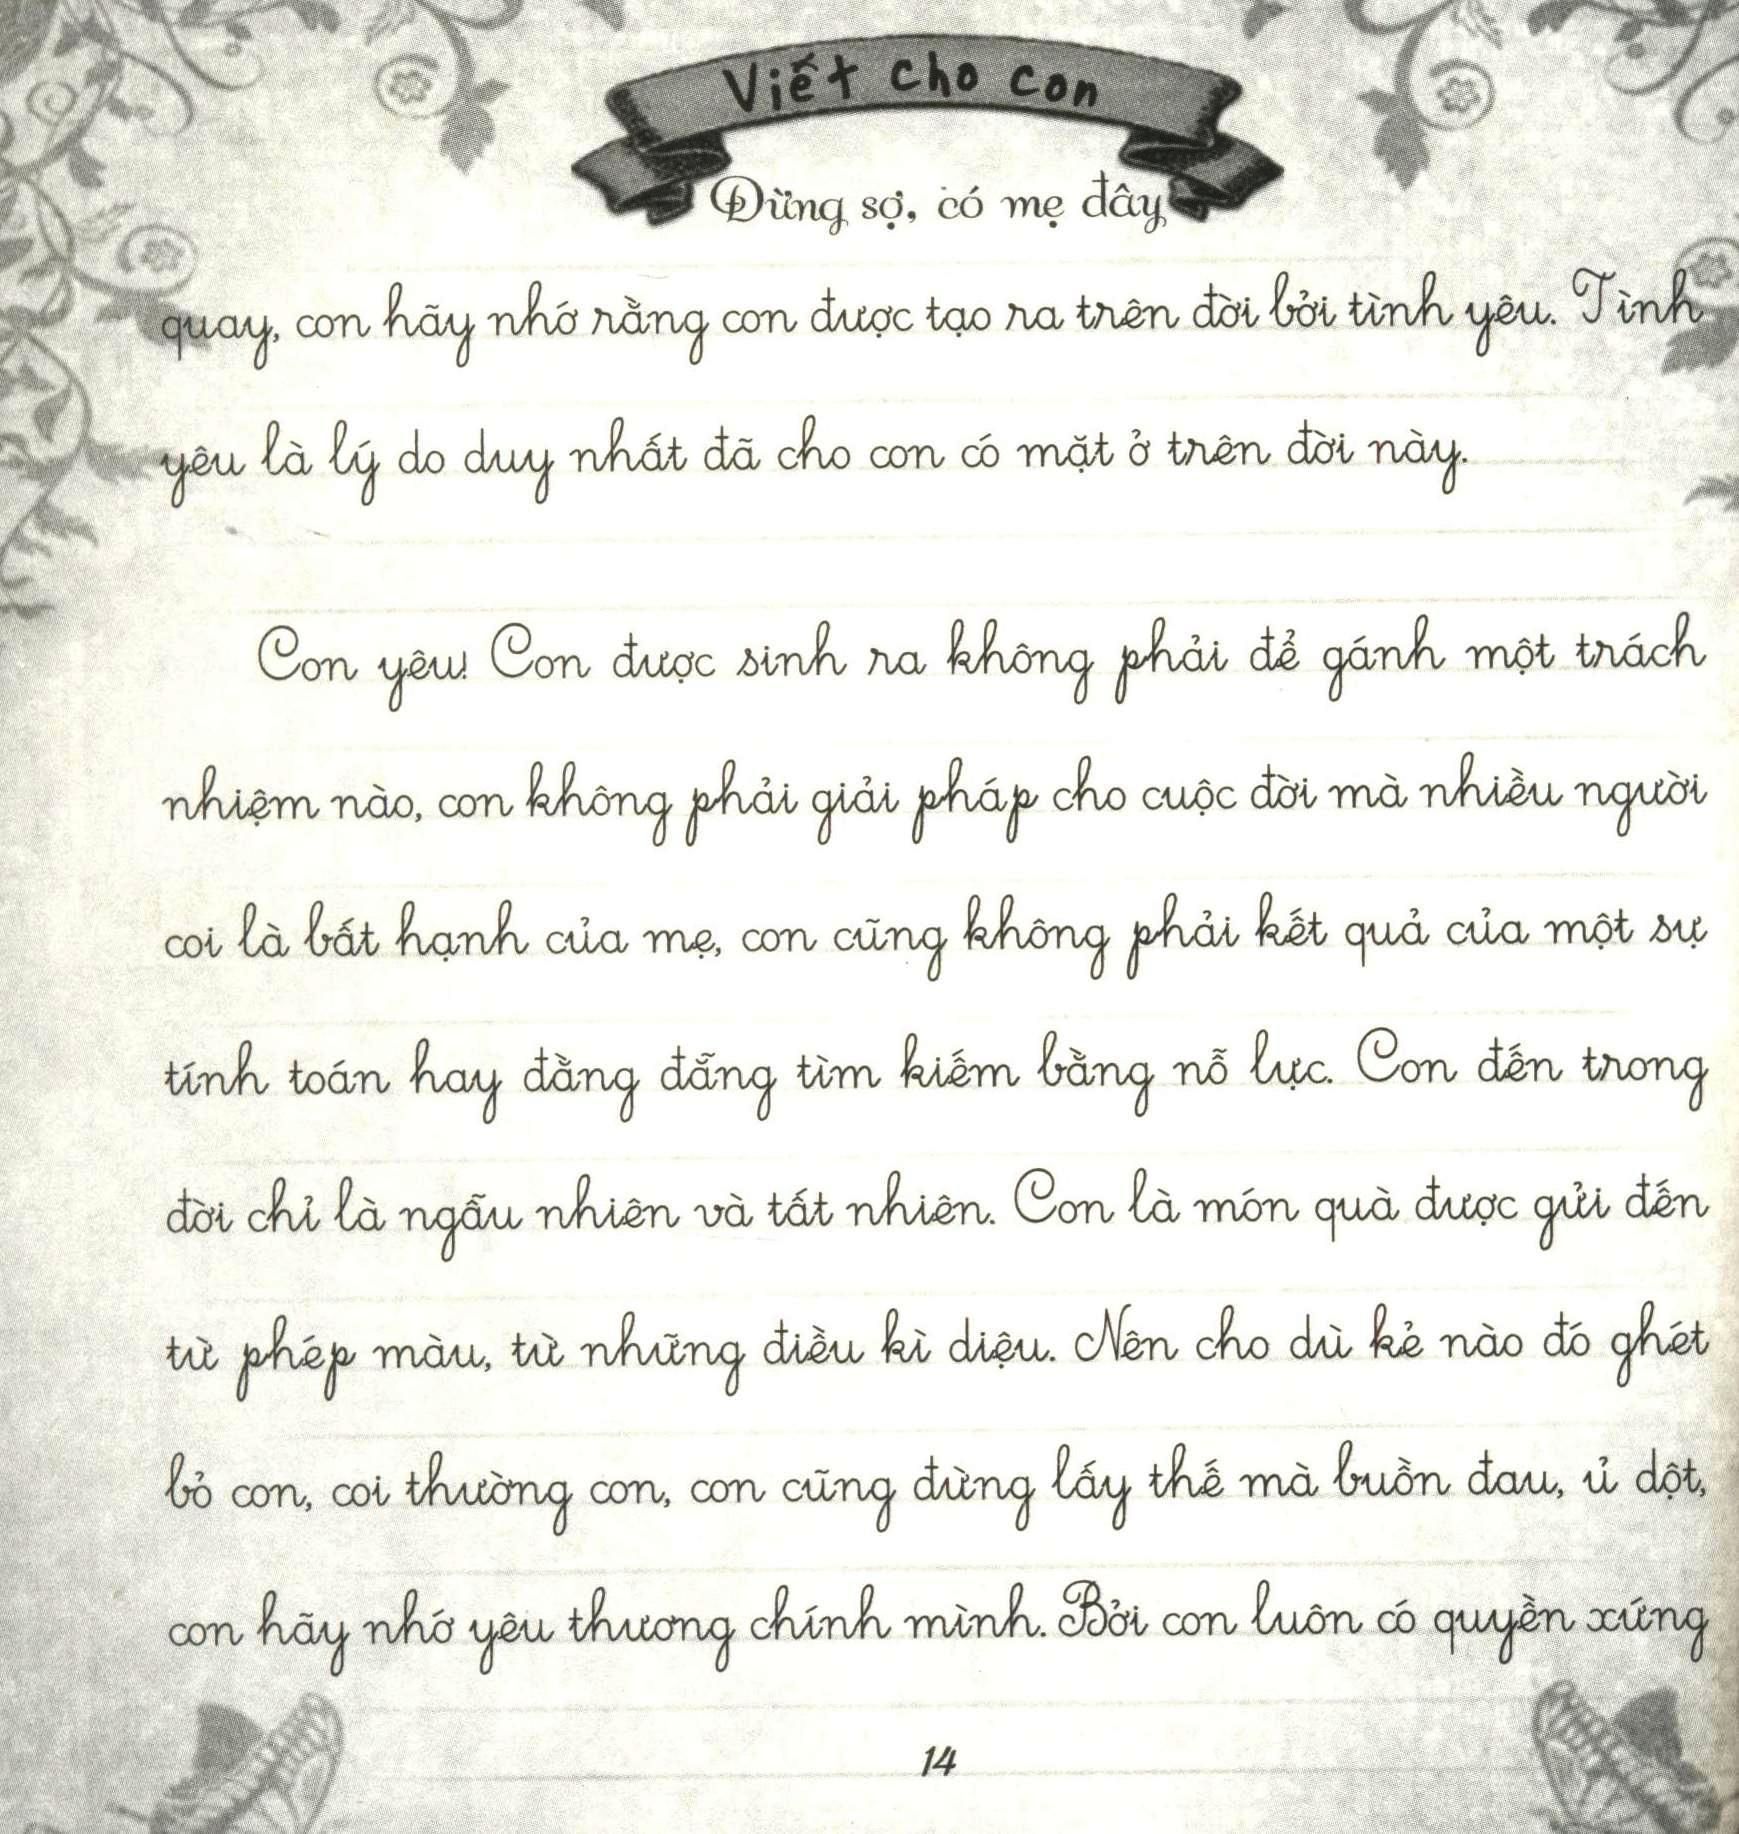 Viết cho con
Đừng sợ, có mẹ đây
quay, con hãy nhớ rằng con được tạo ra trên đời bởi tình yêu. Tình
yêu là lý do duy nhất đã cho con có mặt ở trên đời này.
Con yêu! Con được sinh ra không phải để gánh một trách
nhiệm nào, con không phải giải pháp cho cuộc đời mà nhiều người
coi là bất hạnh của mẹ, con cũng không phải kết quả của một sự
tính toán hay đằng đẵng tìm kiếm bằng nỗ lực. Con đến trong
đời chỉ là ngẫu nhiên và tất nhiên. Con là món quà được gửi đến
từ phép màu, từ những điều kì diệu. Nên cho dù kẻ nào đó ghét
bỏ con, coi thường con, con cũng đừng lấy thế mà buồn đau, ủ dột,
con hãy nhớ yêu thương chính mình. Bởi con luôn có quyền xứng
14